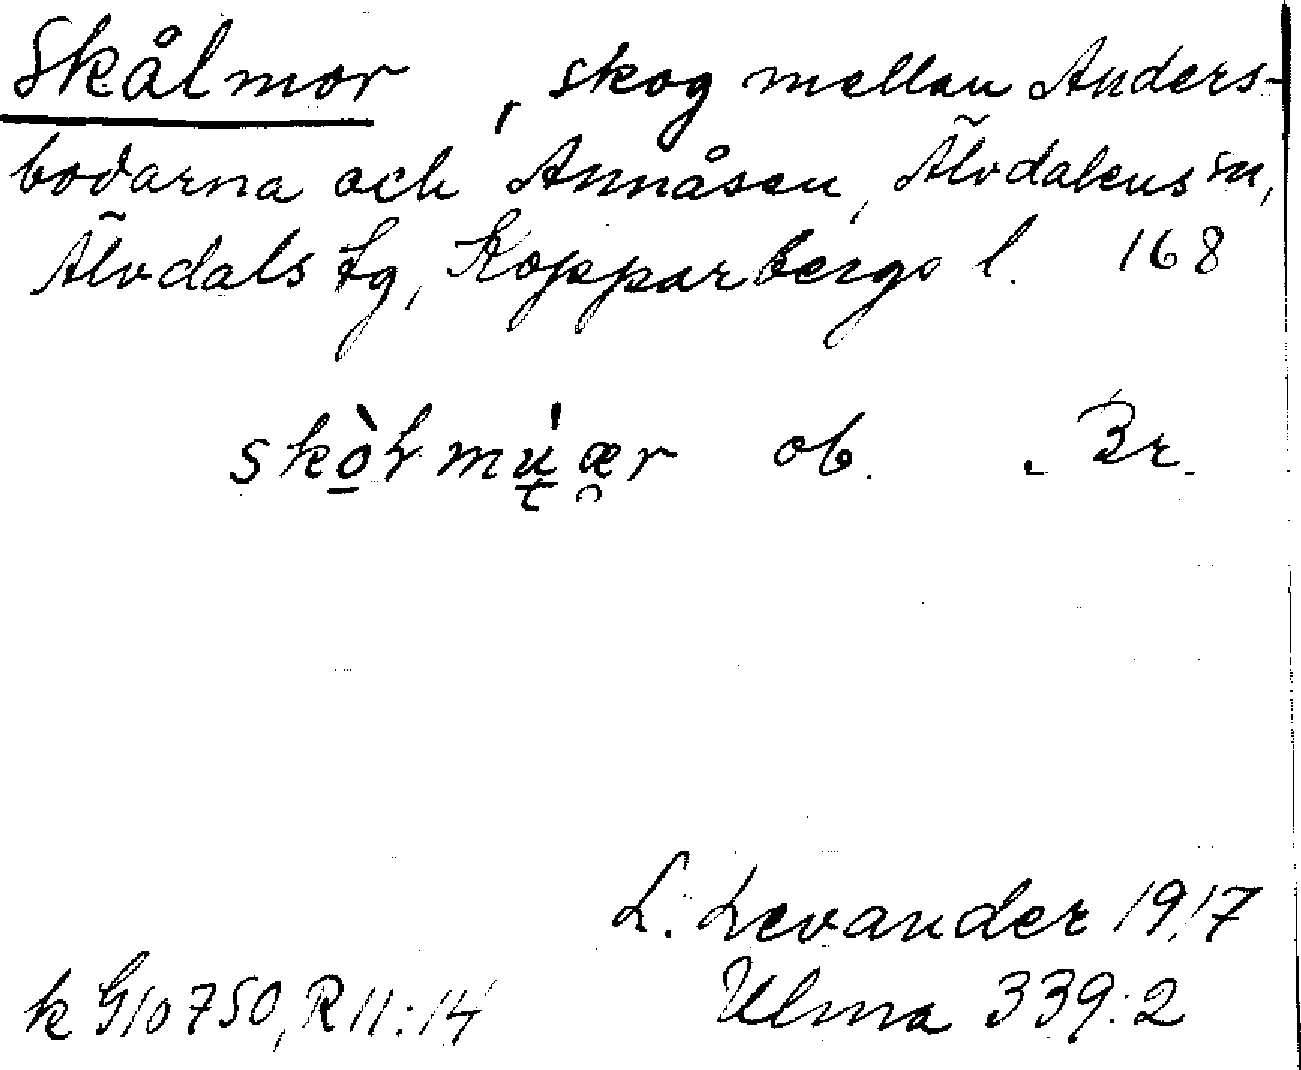 Skålmor, skog mellan Anders-
bodarna och Annåsen, Älvdalens sn,
Älvdals tg, Kopparbergs l. 168
skò̱ł mú̱ær ob. Br.
L. Levander 1917
k G10750, R11:14 Ulma 339:2